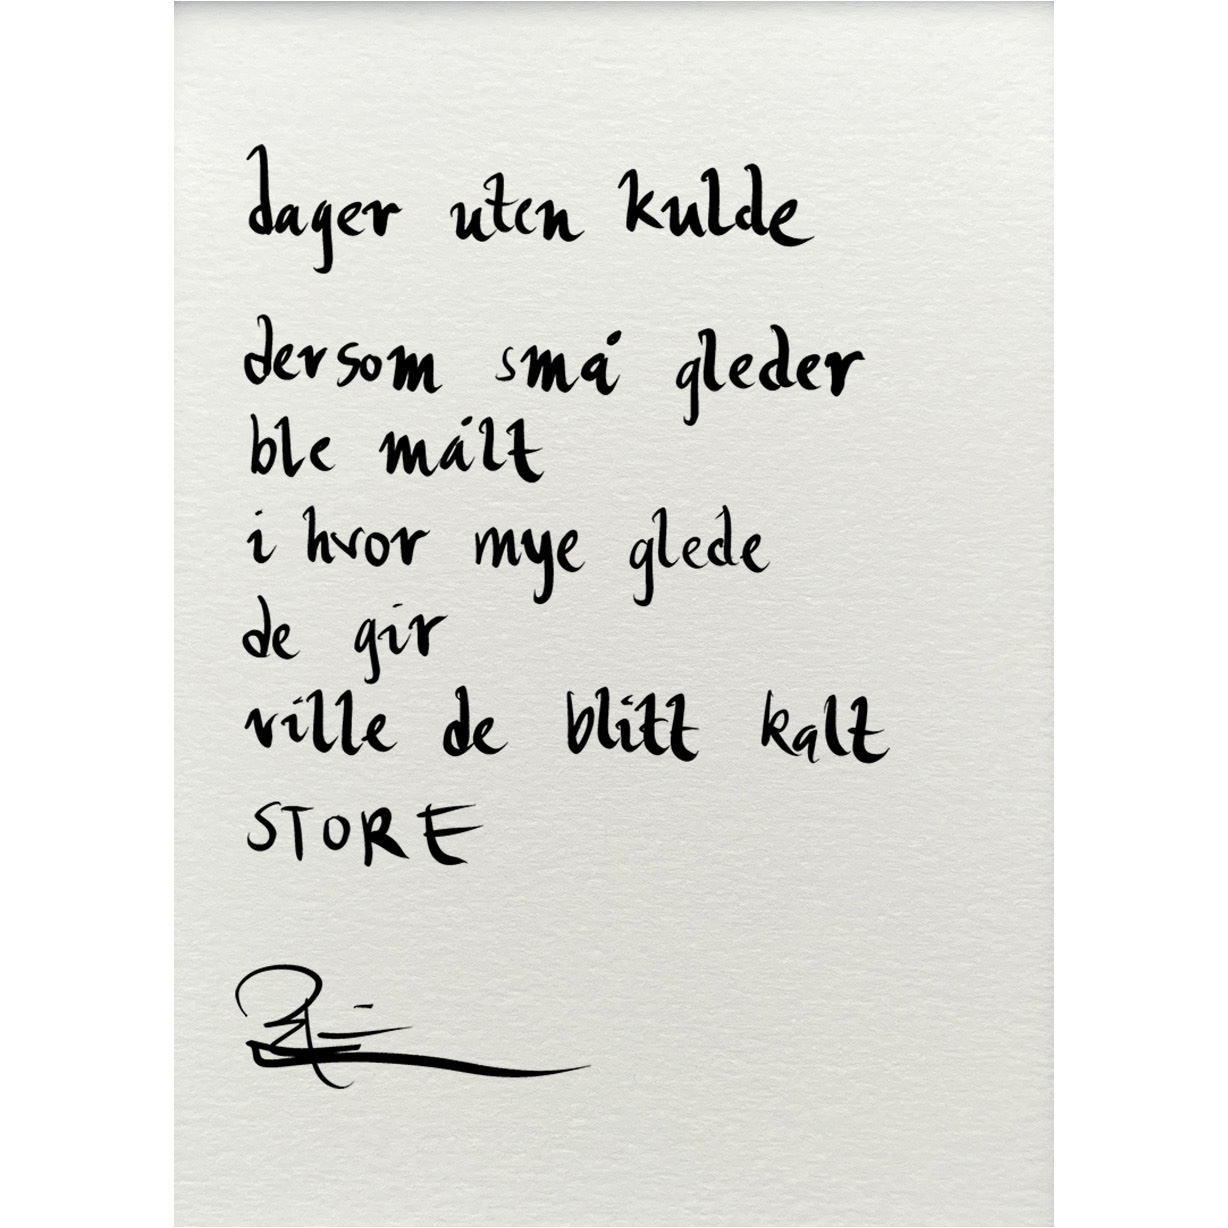 dager uten kulde
dersom små gleder
ble målt
i hvor mye glede
de gir
ville de blitt kalt
STORE